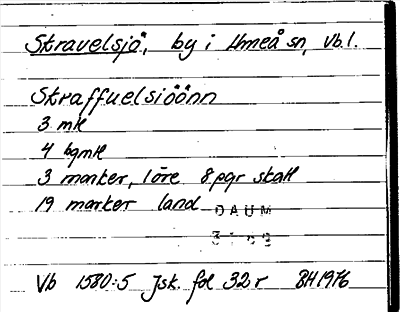 Stravelsjö, by i Umeå sn, Vb l.
Straffuelsiöönn
3 mtl
4 bgmtl
3 marker, 1 öre 8 pgr skatt
19 marker land
DAUM
Vb 1580:5 Jsk. fol 32 r BH 1976